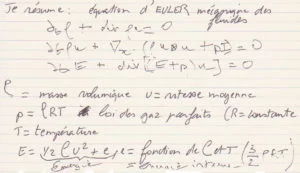 Je résume : équation d'EULER mécanique des fluides
∂tρ + div ρu = 0
∂tρu + ∇x . (ρu⊗u + pI) = 0
∂tE + div [(E+p)u] = 0
ρ = masse volumique u = vitesse moyenne
p = ρRT loi des gaz parfaits (R = constante
T = température
E = 1/2 ρu² + e, e = fonction de ρ et T (3/2 ρRT)
Énergie interne